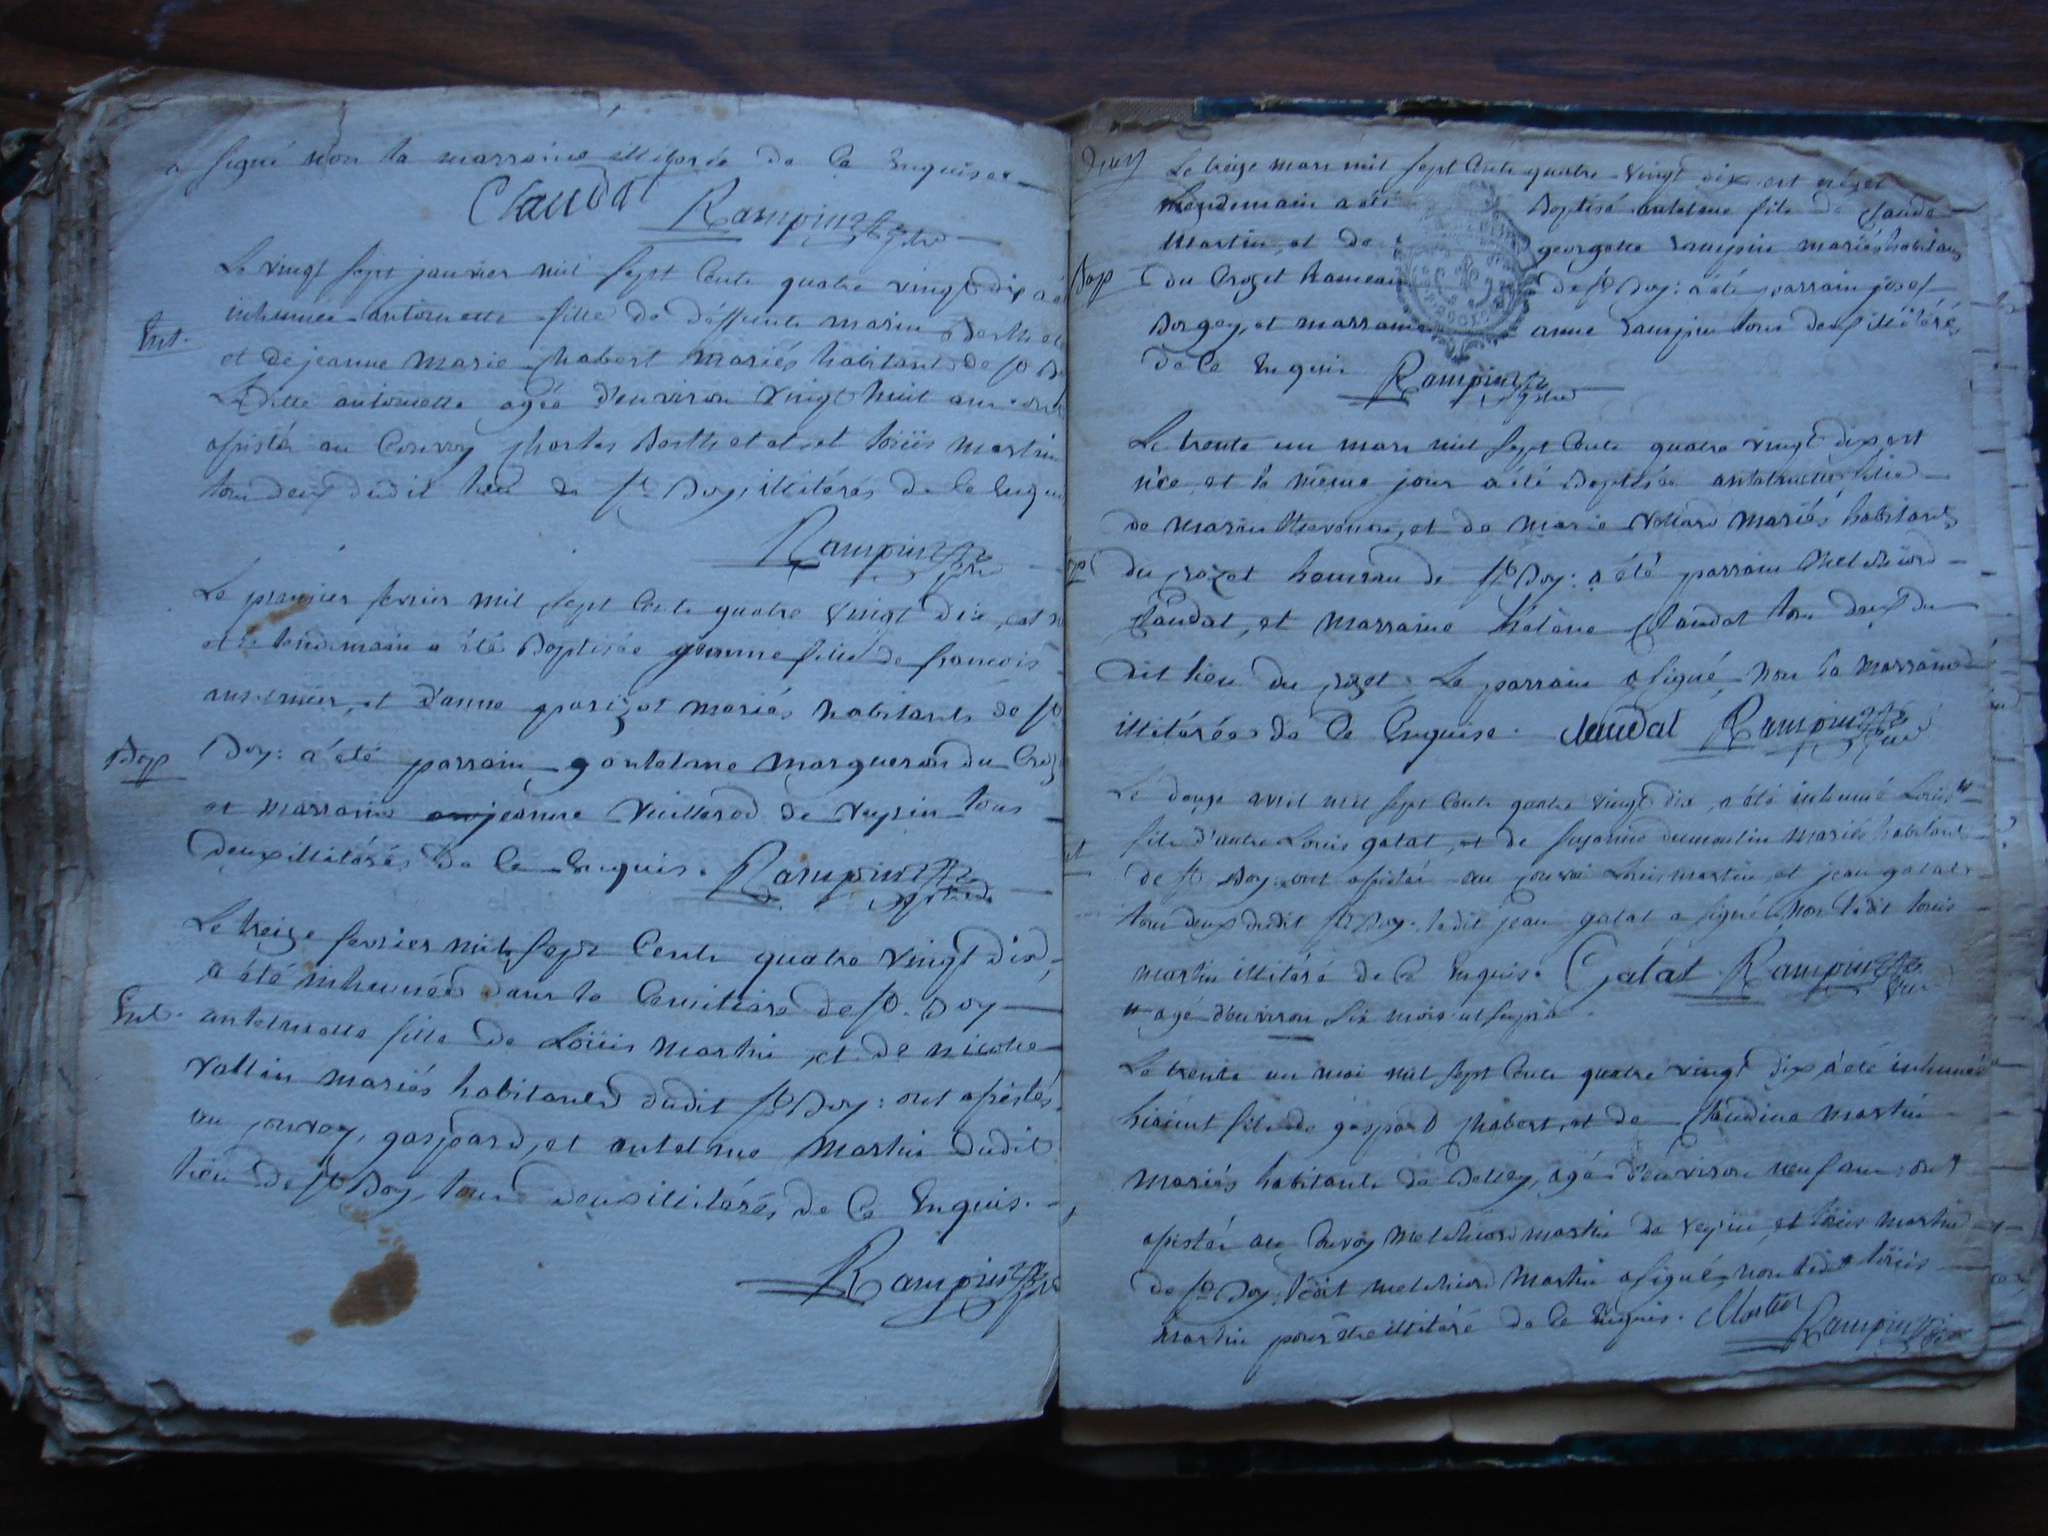 a signé non la marraine illiterée de ce enquise
Claudat Rampin
Le vingt sept janvier mil sept cents quatre vingt dix a été
inhumée antoinette fille de deffunts marin Berthet
et de jeanne marie chabert mariés habitants de st
Ent.
Laditte antoinette agée d'environ vingt huit ans ont
assistés au convoy charles Berthet et Loüis martin
tous deux dudit lieu de st Boy, illiterés de ce Enquis
Rampin
Le premier fevrier mil sept cents quatre vingt dix, est
et le lendemain a été Baptisée jeanne fille de francois
et d'anne parizot mariés habitants de st
Bap
Boy: a été parrain antelme margueron du
et marraine jeanne vuillerod de veyrin tous
deux illiterés de ce Enquis. Rampin
Le treize fevrier mil sept cents quatre vingt dix,
a été inhumée dans le Cemitiere de st. Boy
Ent.
antelmette fille de Loüis martin et de nicolie
vallin mariés habitants dudit st Boy: ont assistés
au convoy, gaspard, et antelme martin dudit
lieu de st Boy, tous deux illiterés de ce Enquis.
Rampin
Le treize mars mil sept cents quatre vingt dix est né et
lendemain a été Baptisé antelme fils de claude
martin, et de georgette rampin mariés habitans
Bap
du Crozet hameau de st Boy: a été parrain josef
Borgey, et marraine anne rampin tous deux illiterés,
de ce Enquis Rampin
Le trente un mars mil sept cents quatre vingt dix est
née et le même jour a été Baptisée antelmette fille
de marin thevenon, et de marie vettard mariés habitants
du crozet hameau de st Boy: a été parrain melchiord
Claudat, et marraine helène claudat tous deux du
dit lieu du crozet. Le parrain a signé, non la marraine
illiterée de ce Enquise. claudat Rampin
Le douze avril mil sept cents quatre vingt dix a été inhumé Louis
fils d'autre Louis galat, et de suzanne dumoulin mariés habitant
de st Boy: ont assistés au convoi Louis martin, et jean galat
tous deux dudit st Boy. ledit jean galat a signé, non ledit louis
martin illiteré de ce Enquis. Galat Rampin
agé d'environ six mois ut supra
Le trente un mai mil sept cents quatre vingt dix a été inhumé
fils de gaspard chabert, et de claudine martin
mariés habitants de Belley, agé d'environ neuf ans: ont
assistés au convoy melchiord martin de veyrin, et loüis martin
de st Boy, ledit melchiord martin a signé, non ledit loüis
martin pour être illiteré de ce Enquis. Martin Rampin